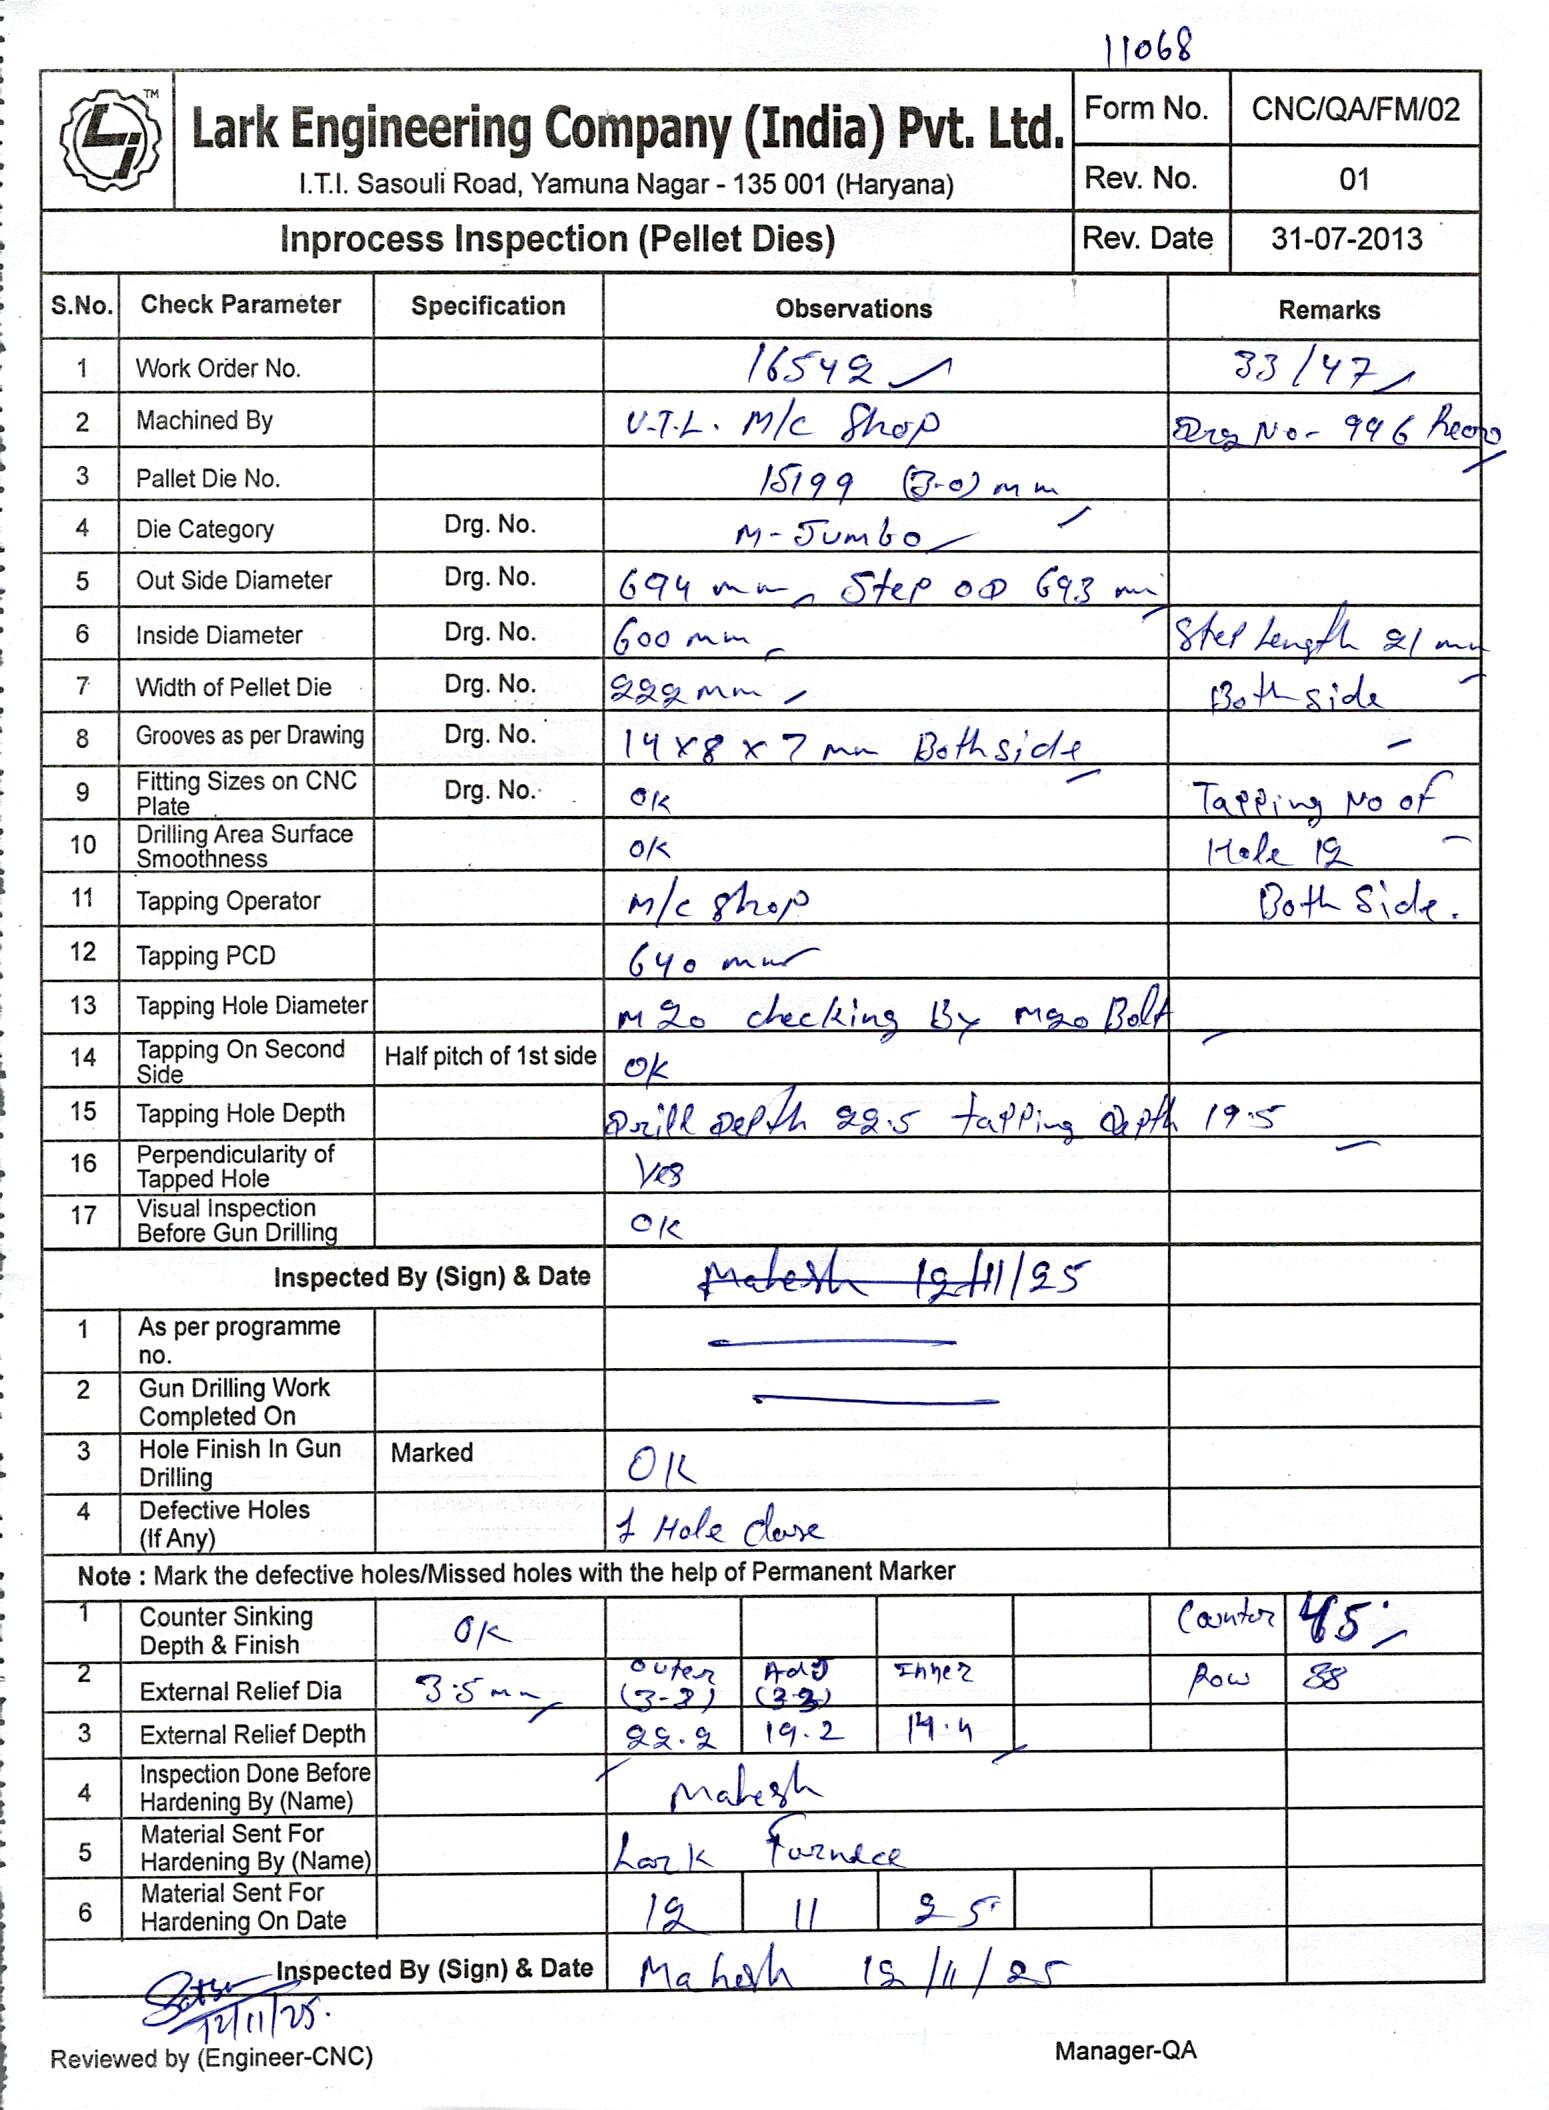 11068
TM
Lark Engineering Company (India) Pvt. Ltd.
I.T.I. Sasouli Road, Yamuna Nagar - 135 001 (Haryana)
Form No. CNC/QA/FM/02
Rev. No. 01
Inprocess Inspection (Pellet Dies) Rev. Date 31-07-2013
S.No. Check Parameter Specification Observations Remarks
1 Work Order No. 16542 33/47
2 Machined By V.T.L. M/c Shop Drg No- 996
3 Pallet Die No. 15199 (3-0) mm
4 Die Category Drg. No. M-Jumbo
5 Out Side Diameter Drg. No. 694 mm, Step OD 693 mm
6 Inside Diameter Drg. No. 600 mm Step Length 21 mm
7 Width of Pellet Die Drg. No. 222 mm Both side
8 Grooves as per Drawing Drg. No. 14 x 8 x 7 mm Both side
9 Fitting Sizes on CNC Plate Drg. No. OK Tapping No of
10 Drilling Area Surface Smoothness OK Hole 12
11 Tapping Operator M/c Shop Both Side.
12 Tapping PCD 640 mm
13 Tapping Hole Diameter M20 checking By M20 Bolt
14 Tapping On Second Side Half pitch of 1st side OK
15 Tapping Hole Depth Drill Depth 22.5 tapping depth 19.5
16 Perpendicularity of Tapped Hole Yes
17 Visual Inspection Before Gun Drilling OK
Inspected By (Sign) & Date Mahesh 12/11/25
1 As per programme no.
2 Gun Drilling Work Completed On
3 Hole Finish In Gun Drilling Marked OK
4 Defective Holes (If Any) 1 Hole Close
Note : Mark the defective holes/Missed holes with the help of Permanent Marker
1 Counter Sinking Depth & Finish OK Counter 45°
2 External Relief Dia 3.5 mm Outer (3-3) Adj (3-3) Inner Row 38
3 External Relief Depth 22.2 19.2 14.4
4 Inspection Done Before Hardening By (Name) Mahesh
5 Material Sent For Hardening By (Name) Lark Furnace
6 Material Sent For Hardening On Date 12 11 25
Inspected By (Sign) & Date Mahesh 12/11/25
12/11/25.
Reviewed by (Engineer-CNC) Manager-QA